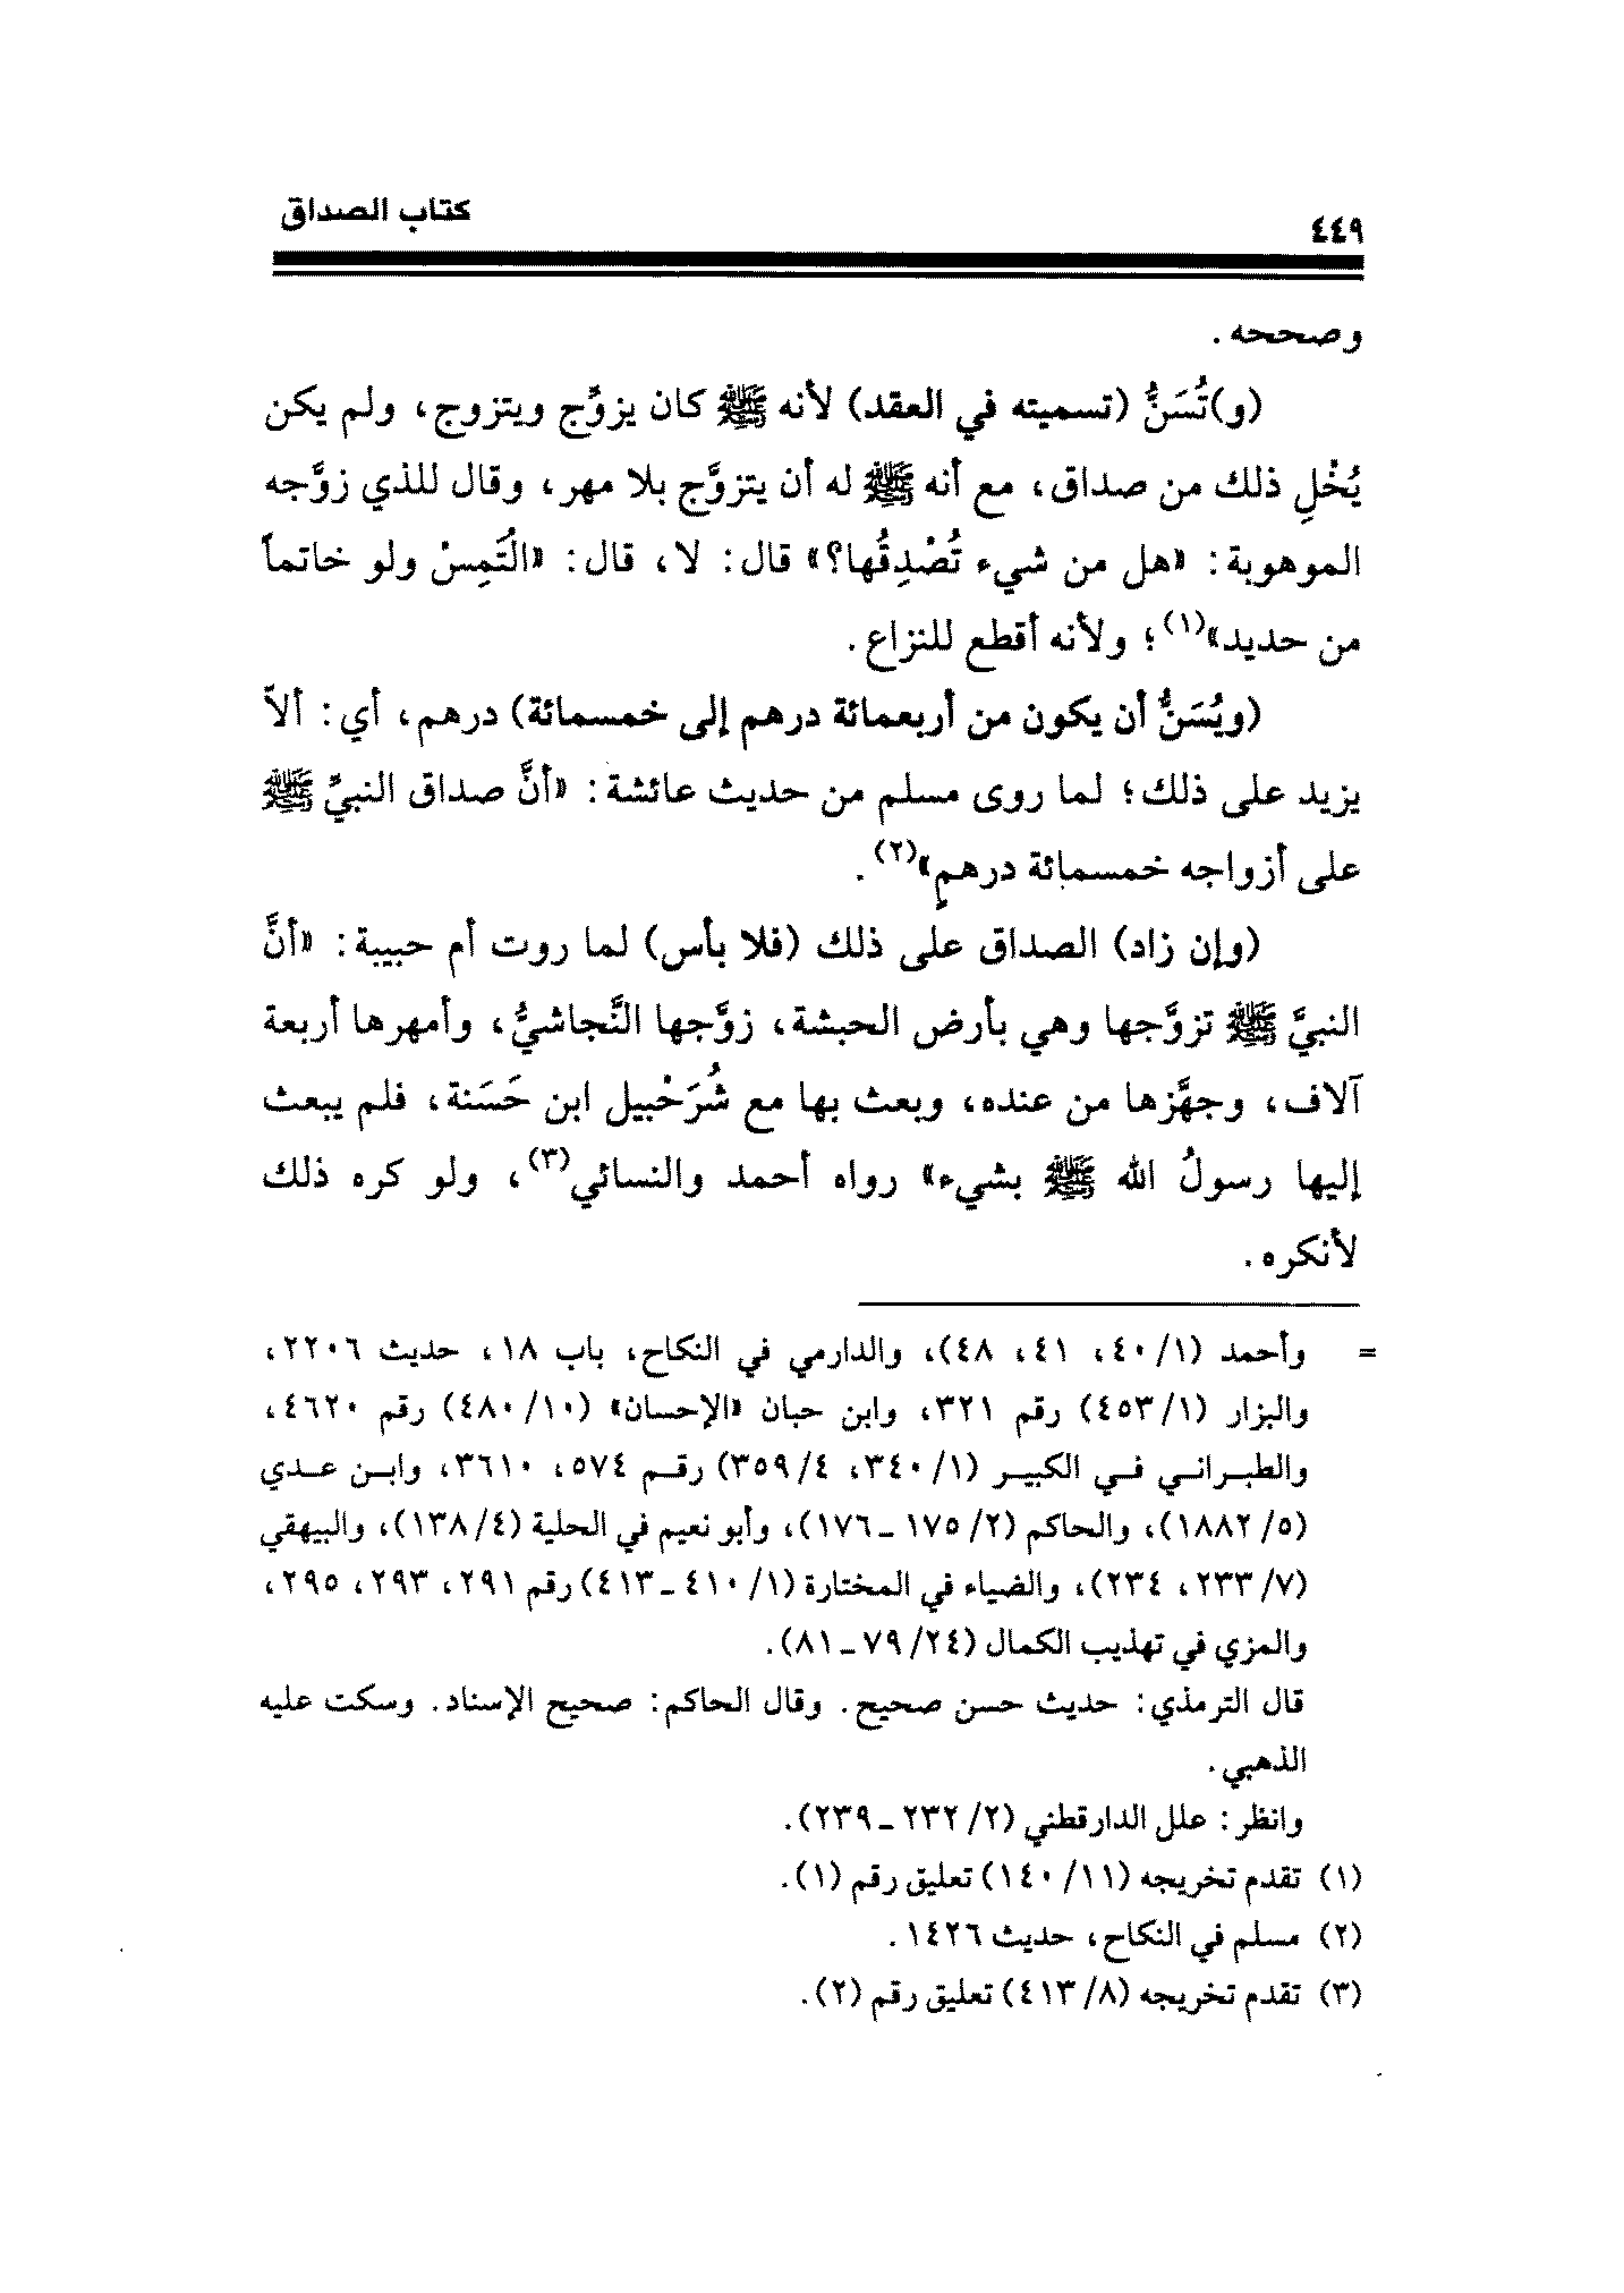 كتاب الصداق
٤٤٩
وصححه.
(و)تُسَنُّ (تسميته في العقد) لأنه ﷺ كان يزوِّج ويتزوج، ولم يكن
يُخْلِ ذلك من صداق، مع أنه ﷺ له أن يتزوَّج بلا مهر، وقال للذي زوَّجه
الموهوبة: «هل من شيء تُصْدِقُها؟» قال: لا، قال: «الْتَمِسْ ولو خاتماً
من حديد»(١)؛ ولأنه أقطع للنزاع.
(ويُسَنُّ أن يكون من أربعمائة درهم إلى خمسمائة) درهم، أي: ألاّ
يزيد على ذلك؛ لما روى مسلم من حديث عائشة: «أنَّ صداق النبيِّ ﷺ
على أزواجه خمسمائة درهمٍ»(٢).
(وإن زاد) الصداق على ذلك (فلا بأس) لما روت أم حبيبة: «أنَّ
النبيَّ ﷺ تزوَّجها وهي بأرض الحبشة، زوَّجها النَّجاشيُّ، وأمهرها أربعة
آلاف، وجهَّزها من عنده، وبعث بها مع شُرَحْبيل ابن حَسَنة، فلم يبعث
إليها رسولُ الله ﷺ بشيء» رواه أحمد والنسائي(٣)، ولو كره ذلك
لأنكره.
= وأحمد (١/ ٤٠، ٤١، ٤٨)، والدارمي في النكاح، باب ١٨، حديث ٢٢٠٦،
والبزار (١/ ٤٥٣) رقم ٣٢١، وابن حبان «الإحسان» (١٠/ ٤٨٠) رقم ٤٦٢٠،
والطبراني في الكبير (١/ ٣٤٠، ٤/ ٣٥٩) رقم ٥٧٤، ٣٦١٠، وابن عدي
(٥/ ١٨٨٢)، والحاكم (٢/ ١٧٥ ـ ١٧٦)، وأبو نعيم في الحلية (٤/ ١٣٨)، والبيهقي
(٧/ ٢٣٣، ٢٣٤)، والضياء في المختارة (١/ ٤١٠ ـ ٤١٣) رقم ٢٩١، ٢٩٣، ٢٩٥،
والمزي في تهذيب الكمال (٢٤/ ٧٩ ـ ٨١).
قال الترمذي: حديث حسن صحيح. وقال الحاكم: صحيح الإسناد. وسكت عليه
الذهبي.
وانظر: علل الدارقطني (٢/ ٢٣٢ ـ ٢٣٩).
(١) تقدم تخريجه (١١/ ١٤٠) تعليق رقم (١).
(٢) مسلم في النكاح، حديث ١٤٢٦.
(٣) تقدم تخريجه (٨/ ٤١٣) تعليق رقم (٢).